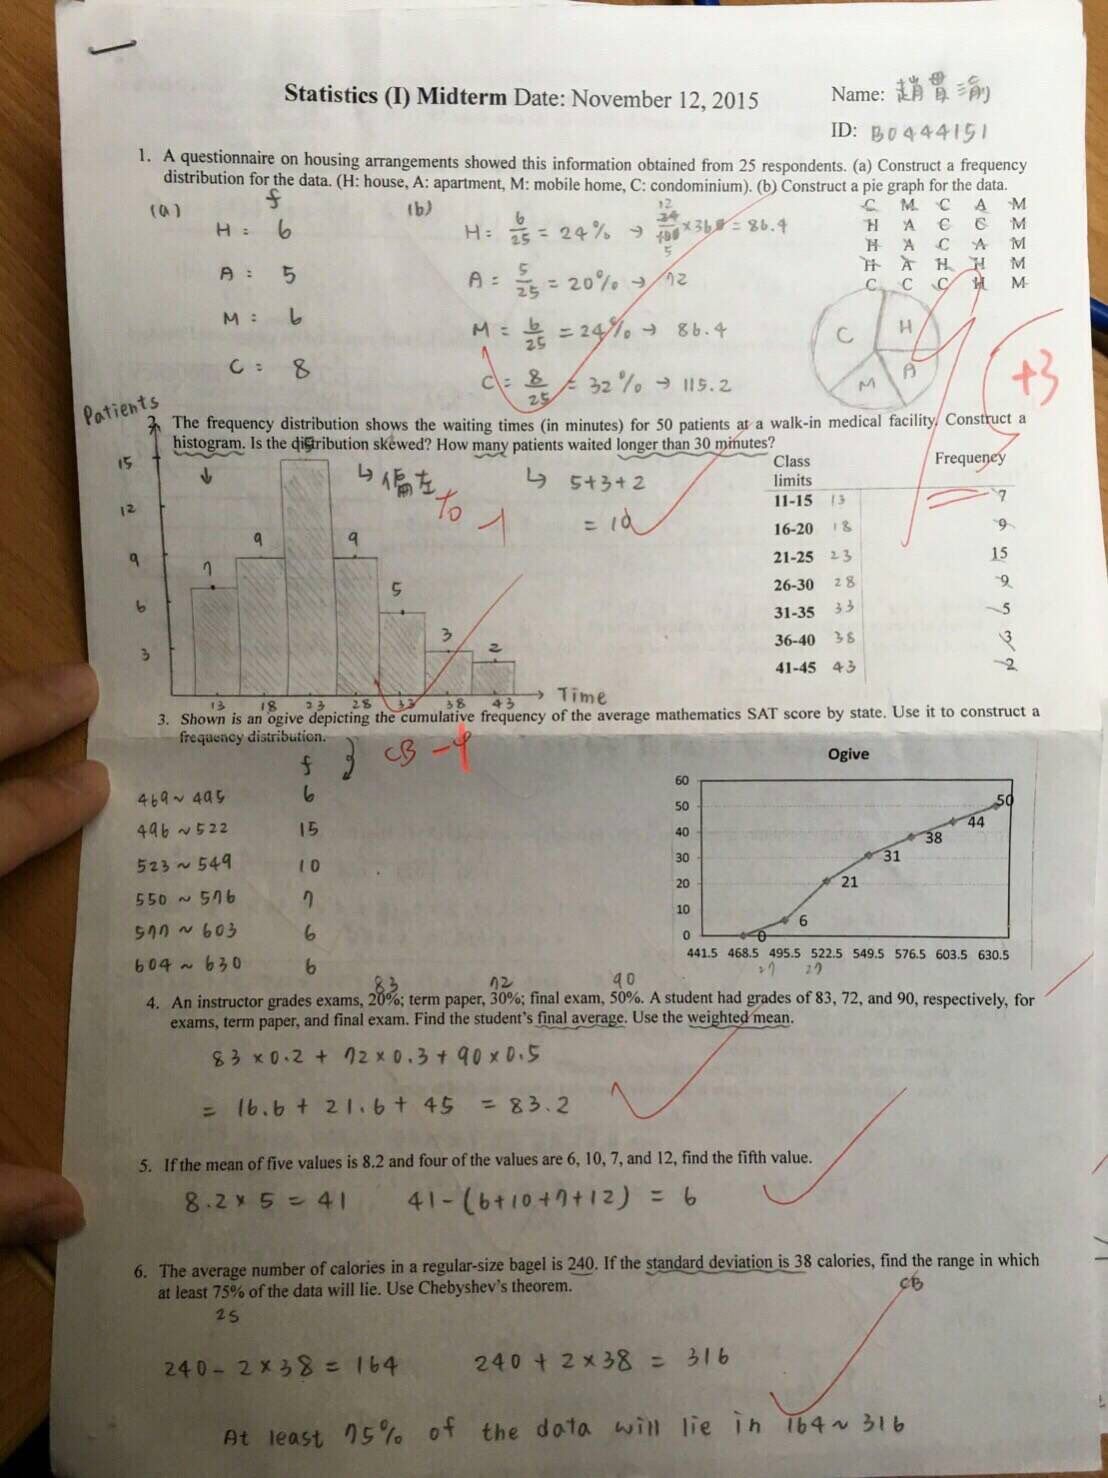 Statistics (I) Midterm Date: November 12, 2015
Name: 趙貫渝
ID: B0444151
1. A questionnaire on housing arrangements showed this information obtained from 25 respondents. (a) Construct a frequency
distribution for the data. (H: house, A: apartment, M: mobile home, C: condominium). (b) Construct a pie graph for the data.
C M C A M
H A C C M
H A C A M
H A H H M
C C C H M
(a) f
H: 6
A: 5
M: 6
C: 8
(b)
H: 6/25 = 24% → 24/100 × 360 = 86.4
12
5
A = 5/25 = 20% → 72
M = 6/25 = 24% → 86.4
C = 8/25 = 32% → 115.2
C H
M A
+3
Patients
2. The frequency distribution shows the waiting times (in minutes) for 50 patients at a walk-in medical facility. Construct a
histogram. Is the distribution skewed? How many patients waited longer than 30 minutes?
↓
↳ 偏左
to -1
↳ 5+3+2
= 10
Class limits Frequency
11-15 13 7
16-20 18 9
21-25 23 15
26-30 28 9
31-35 33 5
36-40 38 3
41-45 43 2
15
12
9
6
3
7 9 15 9 5 3 2
13 18 23 28 33 38 43 Time
3. Shown is an ogive depicting the cumulative frequency of the average mathematics SAT score by state. Use it to construct a
frequency distribution.
CB -4
f
469~495 6
496~522 15
523~549 10
550~576 7
577~603 6
604~630 6
Ogive
60
50
40
30
20
10
0
0 6 21 31 38 44 50
441.5 468.5 495.5 522.5 549.5 576.5 603.5 630.5
27 27
83 72 90
4. An instructor grades exams, 20%; term paper, 30%; final exam, 50%. A student had grades of 83, 72, and 90, respectively, for
exams, term paper, and final exam. Find the student's final average. Use the weighted mean.
83 × 0.2 + 72 × 0.3 + 90 × 0.5
= 16.6 + 21.6 + 45 = 83.2
5. If the mean of five values is 8.2 and four of the values are 6, 10, 7, and 12, find the fifth value.
8.2 × 5 = 41 41-(6+10+7+12) = 6
6. The average number of calories in a regular-size bagel is 240. If the standard deviation is 38 calories, find the range in which
at least 75% of the data will lie. Use Chebyshev's theorem.
CB
2s
240 - 2 × 38 = 164 240 + 2 × 38 = 316
At least 75% of the data will lie in 164 ~ 316